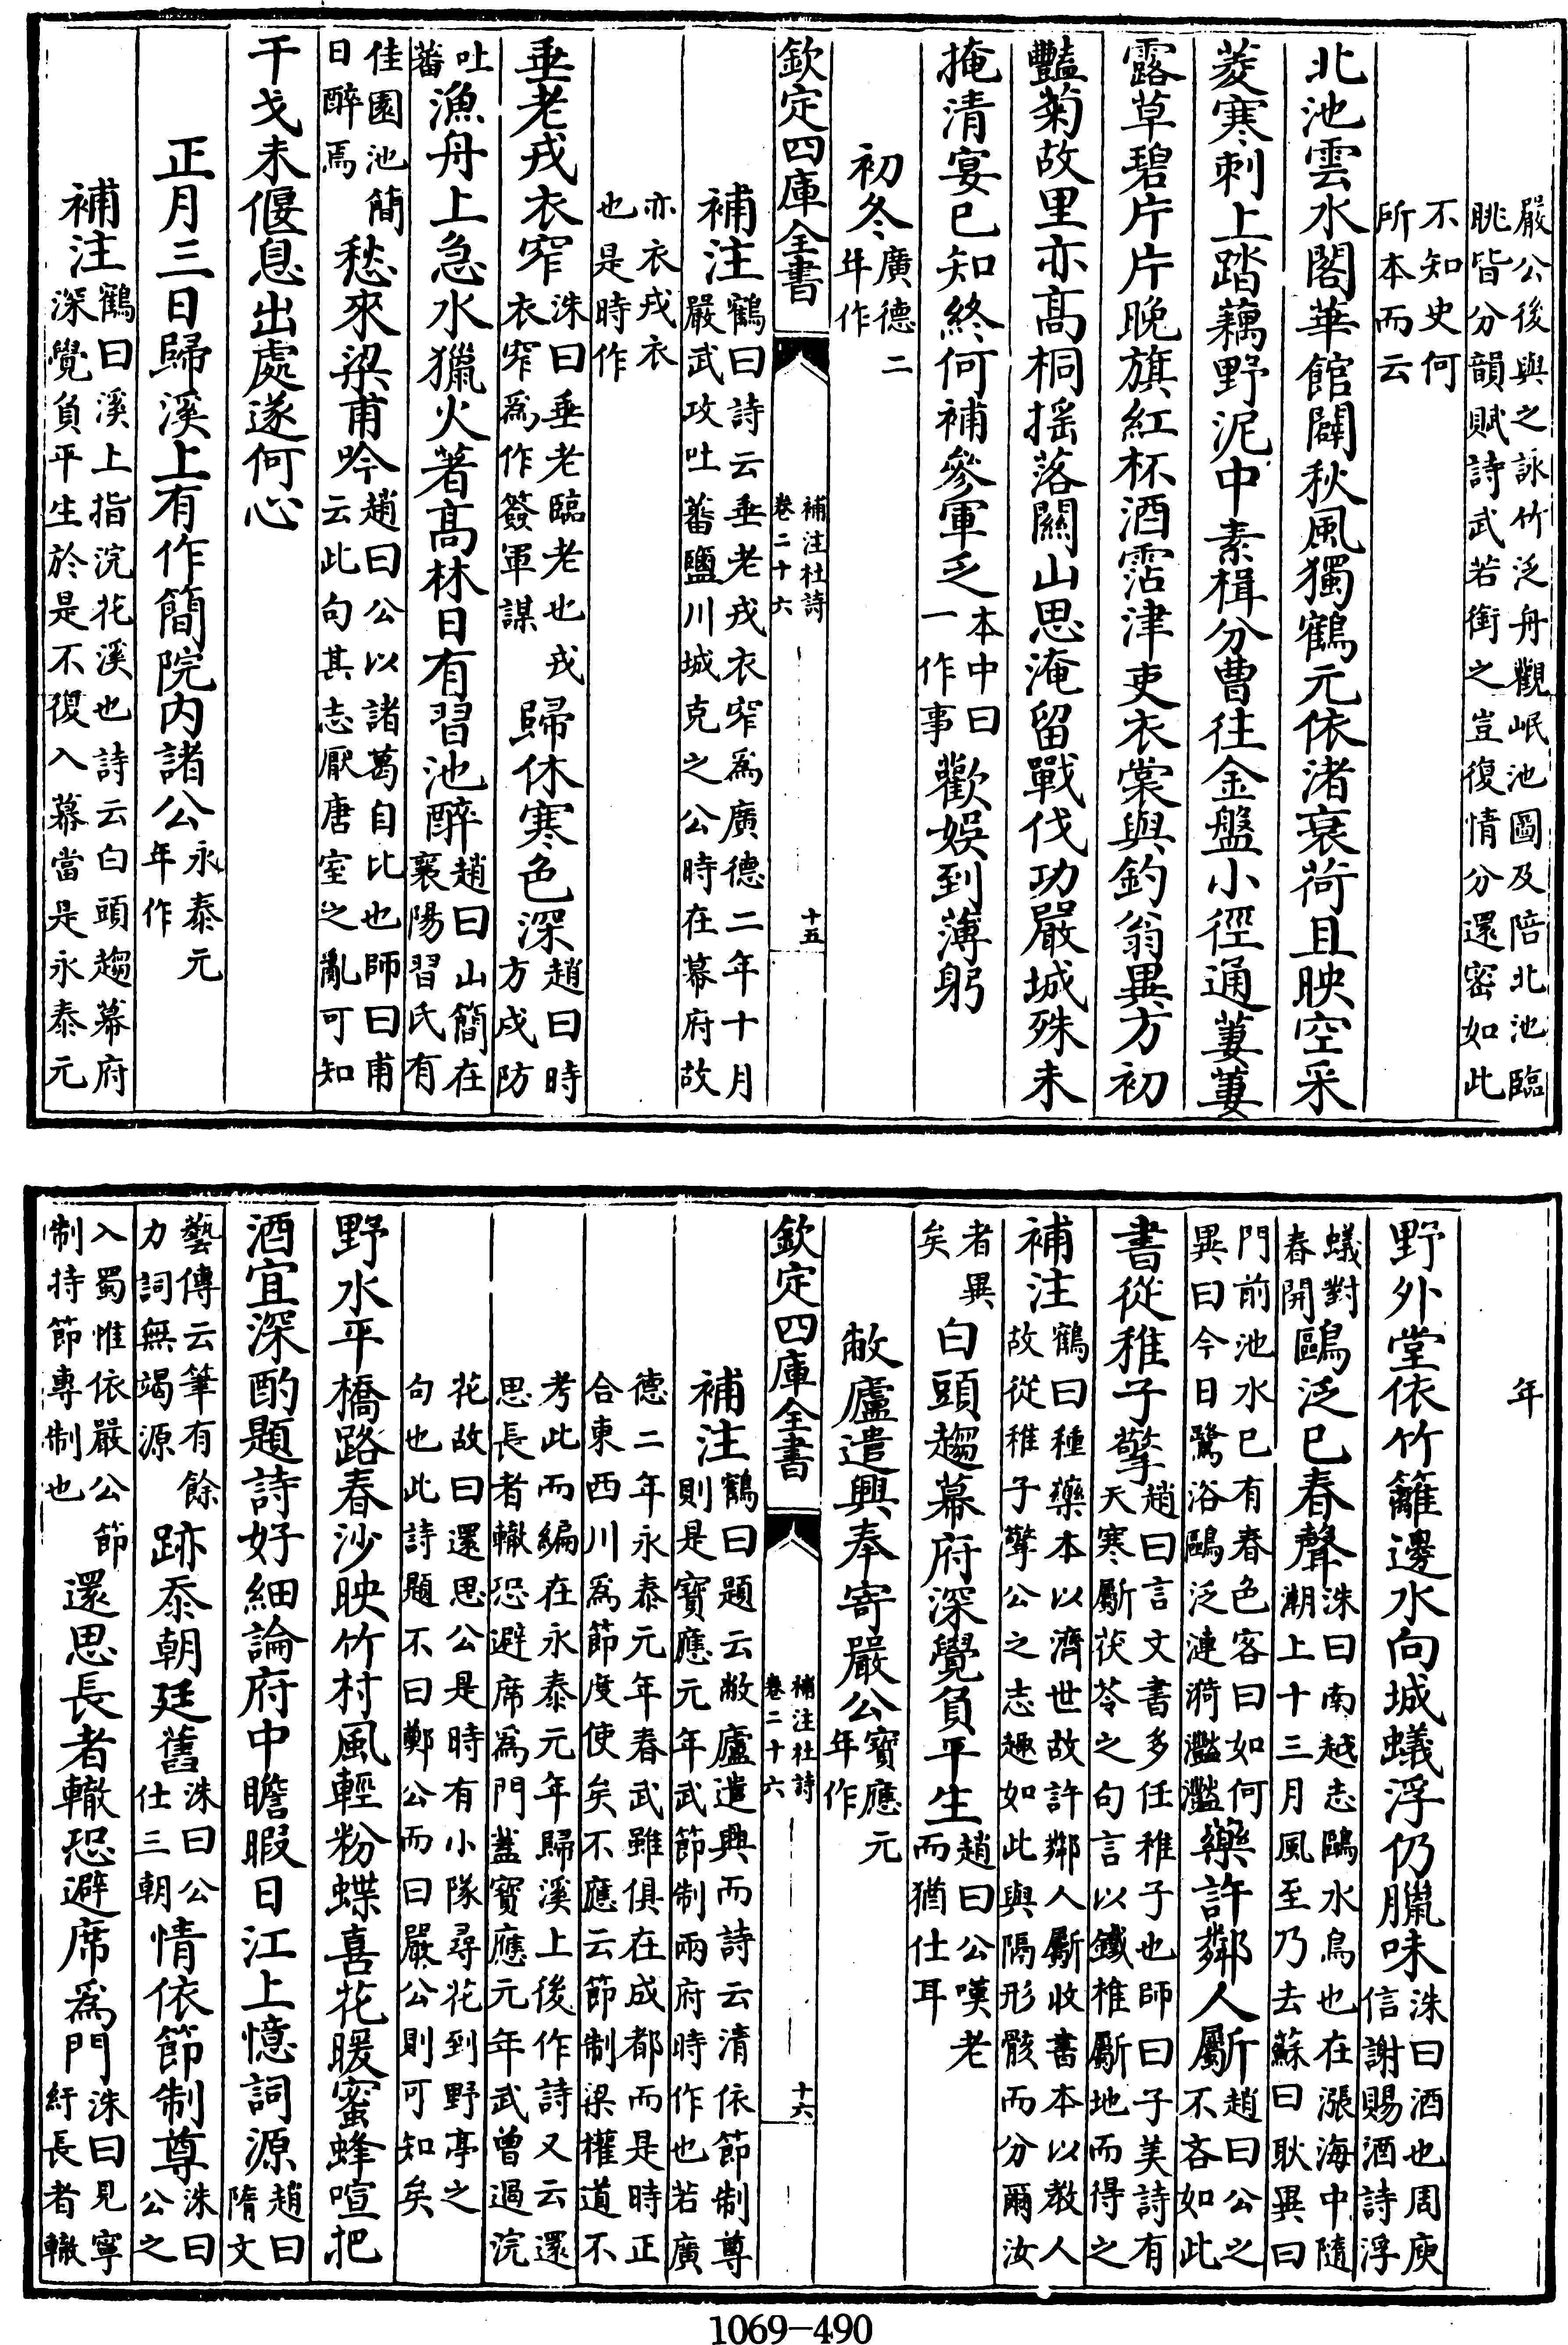 嚴公後與之詠竹泛舟觀岷池圖及陪北池臨
眺皆分韻賦詩武若銜之豈復情分還密如此
不知史何
所本而云
北池雲水閣華館闢秋風獨鶴元依渚衰荷且映空采
菱寒刺上踏藕野泥中素楫分曹往金盤小徑通萋萋
露草碧片片晚旗紅杯酒霑津吏衣裳與釣翁異方初
豔菊故里亦髙桐揺落關山思淹留戰伐功嚴城殊未
掩清宴已知終何補參軍乏本中曰一作事歡娛到薄躬
初冬廣德二年作
欽定四庫全書 補注杜詩 卷二十六 十五
補注鶴曰詩云垂老戎衣窄為廣德二年十月
嚴武攻吐蕃鹽川城克之公時在幕府故
亦衣戎衣
也是時作
垂老戎衣窄洙曰垂老臨老也戎衣窄為作簽軍謀歸休寒色深趙曰時方戍防
吐蕃漁舟上急水獵火著髙林日有習池醉趙曰山簡在襄陽習氏有
佳園池簡日醉焉愁來梁甫吟趙曰公以諸葛自比也師曰甫云此句其志厭唐室之亂可知
干戈未偃息出處遂何心
正月三日歸溪上有作簡院内諸公永泰元年作
補注鶴曰溪上指浣花溪也詩云白頭趨幕府
深覺負平生於是不復入幕當是永泰元
年
野外堂依竹籬邊水向城蟻浮仍臘味洙曰酒也周庾信謝賜酒詩浮
蟻對春開鷗泛已春聲洙曰南越志鷗水鳥也在漲海中隨潮上十三月風至乃去蘇曰耿異曰
門前池水已有春色客曰如何異曰今日鷺浴鷗泛漣漪灩灩藥許鄰人斸趙曰公之不吝如此
書從稚子擎趙曰言文書多任稚子也師曰子美詩有天寒斸茯苓之句言以鐵椎斸地而得之
補注鶴曰種藥本以濟世故許鄰人斸收書本以教人
故從稚子擎公之志趣如此與隔形骸而分爾汝
者異矣白頭趨幕府深覺負平生趙曰公嘆老而猶仕耳
敝廬遣興奉寄嚴公寶應元年作
欽定四庫全書 補注杜詩 卷二十六 十六
補注鶴曰題云敝廬遣興而詩云清依節制尊
則是寶應元年武節制兩府時作也若廣
德二年永泰元年春武雖俱在成都而是時正
合東西川為節度使矣不應云節制梁權道不
考此而編在永泰元年歸溪上後作詩又云還
思長者轍恐避席為門蓋寶應元年武曾過浣
花故曰還思公是時有小隊尋花到野亭之
句也此詩題不曰鄭公而曰嚴公則可知矣
野水平橋路春沙映竹村風輕粉蝶喜花暖蜜蜂喧把
酒宜深酌題詩好細論府中瞻暇日江上憶詞源趙曰隋文
藝傳云筆有餘力詞無竭源跡忝朝廷舊洙曰公仕三朝情依節制尊洙曰公之
入蜀惟依嚴公節制持節專制也還思長者轍恐避席為門洙曰見寧紆長者轍
1069-490